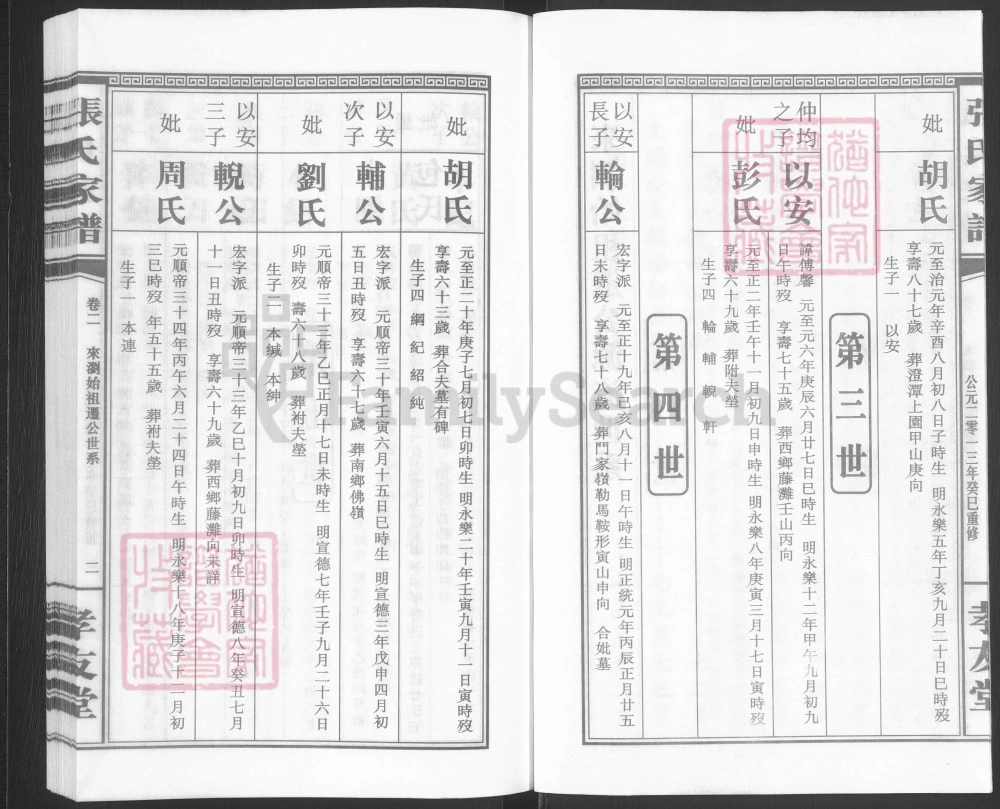 張氏家譜
公元二零一三年癸巳重修
孝友堂
妣
胡氏
元至治元年辛酉八月初八日子時生 明永樂五年丁亥九月二十日巳時歿
享壽八十七歲 葬澄潭上園甲山庚向
生子一 以安
第三世
仲均之子
以安
諱傅馨 元至元六年庚辰六月廿七日巳時生 明永樂十二年甲午九月初九
日午時歿 享壽七十五歲 葬西鄉藤灘壬山丙向
妣
彭氏
元至正二年壬午十一月初九日申時生 明永樂八年庚寅三月十七日寅時歿
享壽六十九歲 葬附夫塋
生子四 輪 輔 輗 軒
第四世
以安長子
輪公
宏字派 元至正十九年己亥八月十一日午時生 明正統元年丙辰正月廿五
日未時歿 享壽七十八歲 葬門家嶺勒馬鞍形寅山申向 合妣墓
妣
胡氏
元至正二十年庚子七月初七日卯時生 明永樂二十年壬寅九月十一日寅時歿
享壽六十三歲 葬合夫墓有碑
生子四 綱 紀 紹 純
以安次子
輔公
宏字派 元順帝三十年壬寅六月十五日巳時生 明宣德三年戊申四月初
五日丑時歿 享壽六十七歲 葬南鄉佛嶺
妣
劉氏
元順帝三十三年乙巳正月十七日未時生 明宣德七年壬子九月二十六日
卯時歿 壽六十八歲 葬祔夫塋
生子二 本緘 本紳
以安三子
輗公
宏字派 元順帝三十三年乙巳十月初九日卯時生 明宣德八年癸丑七月
十一日丑時歿 享壽六十九歲 葬西鄉藤灘向未詳
妣
周氏
元順帝三十四年丙午六月二十四日午時生 明永樂十八年庚子十二月初
三巳時歿 年五十五歲 葬祔夫塋
生子一 本連
張氏家譜
卷二 來瀏始祖遷公世系
二
孝友堂
FamilySearch